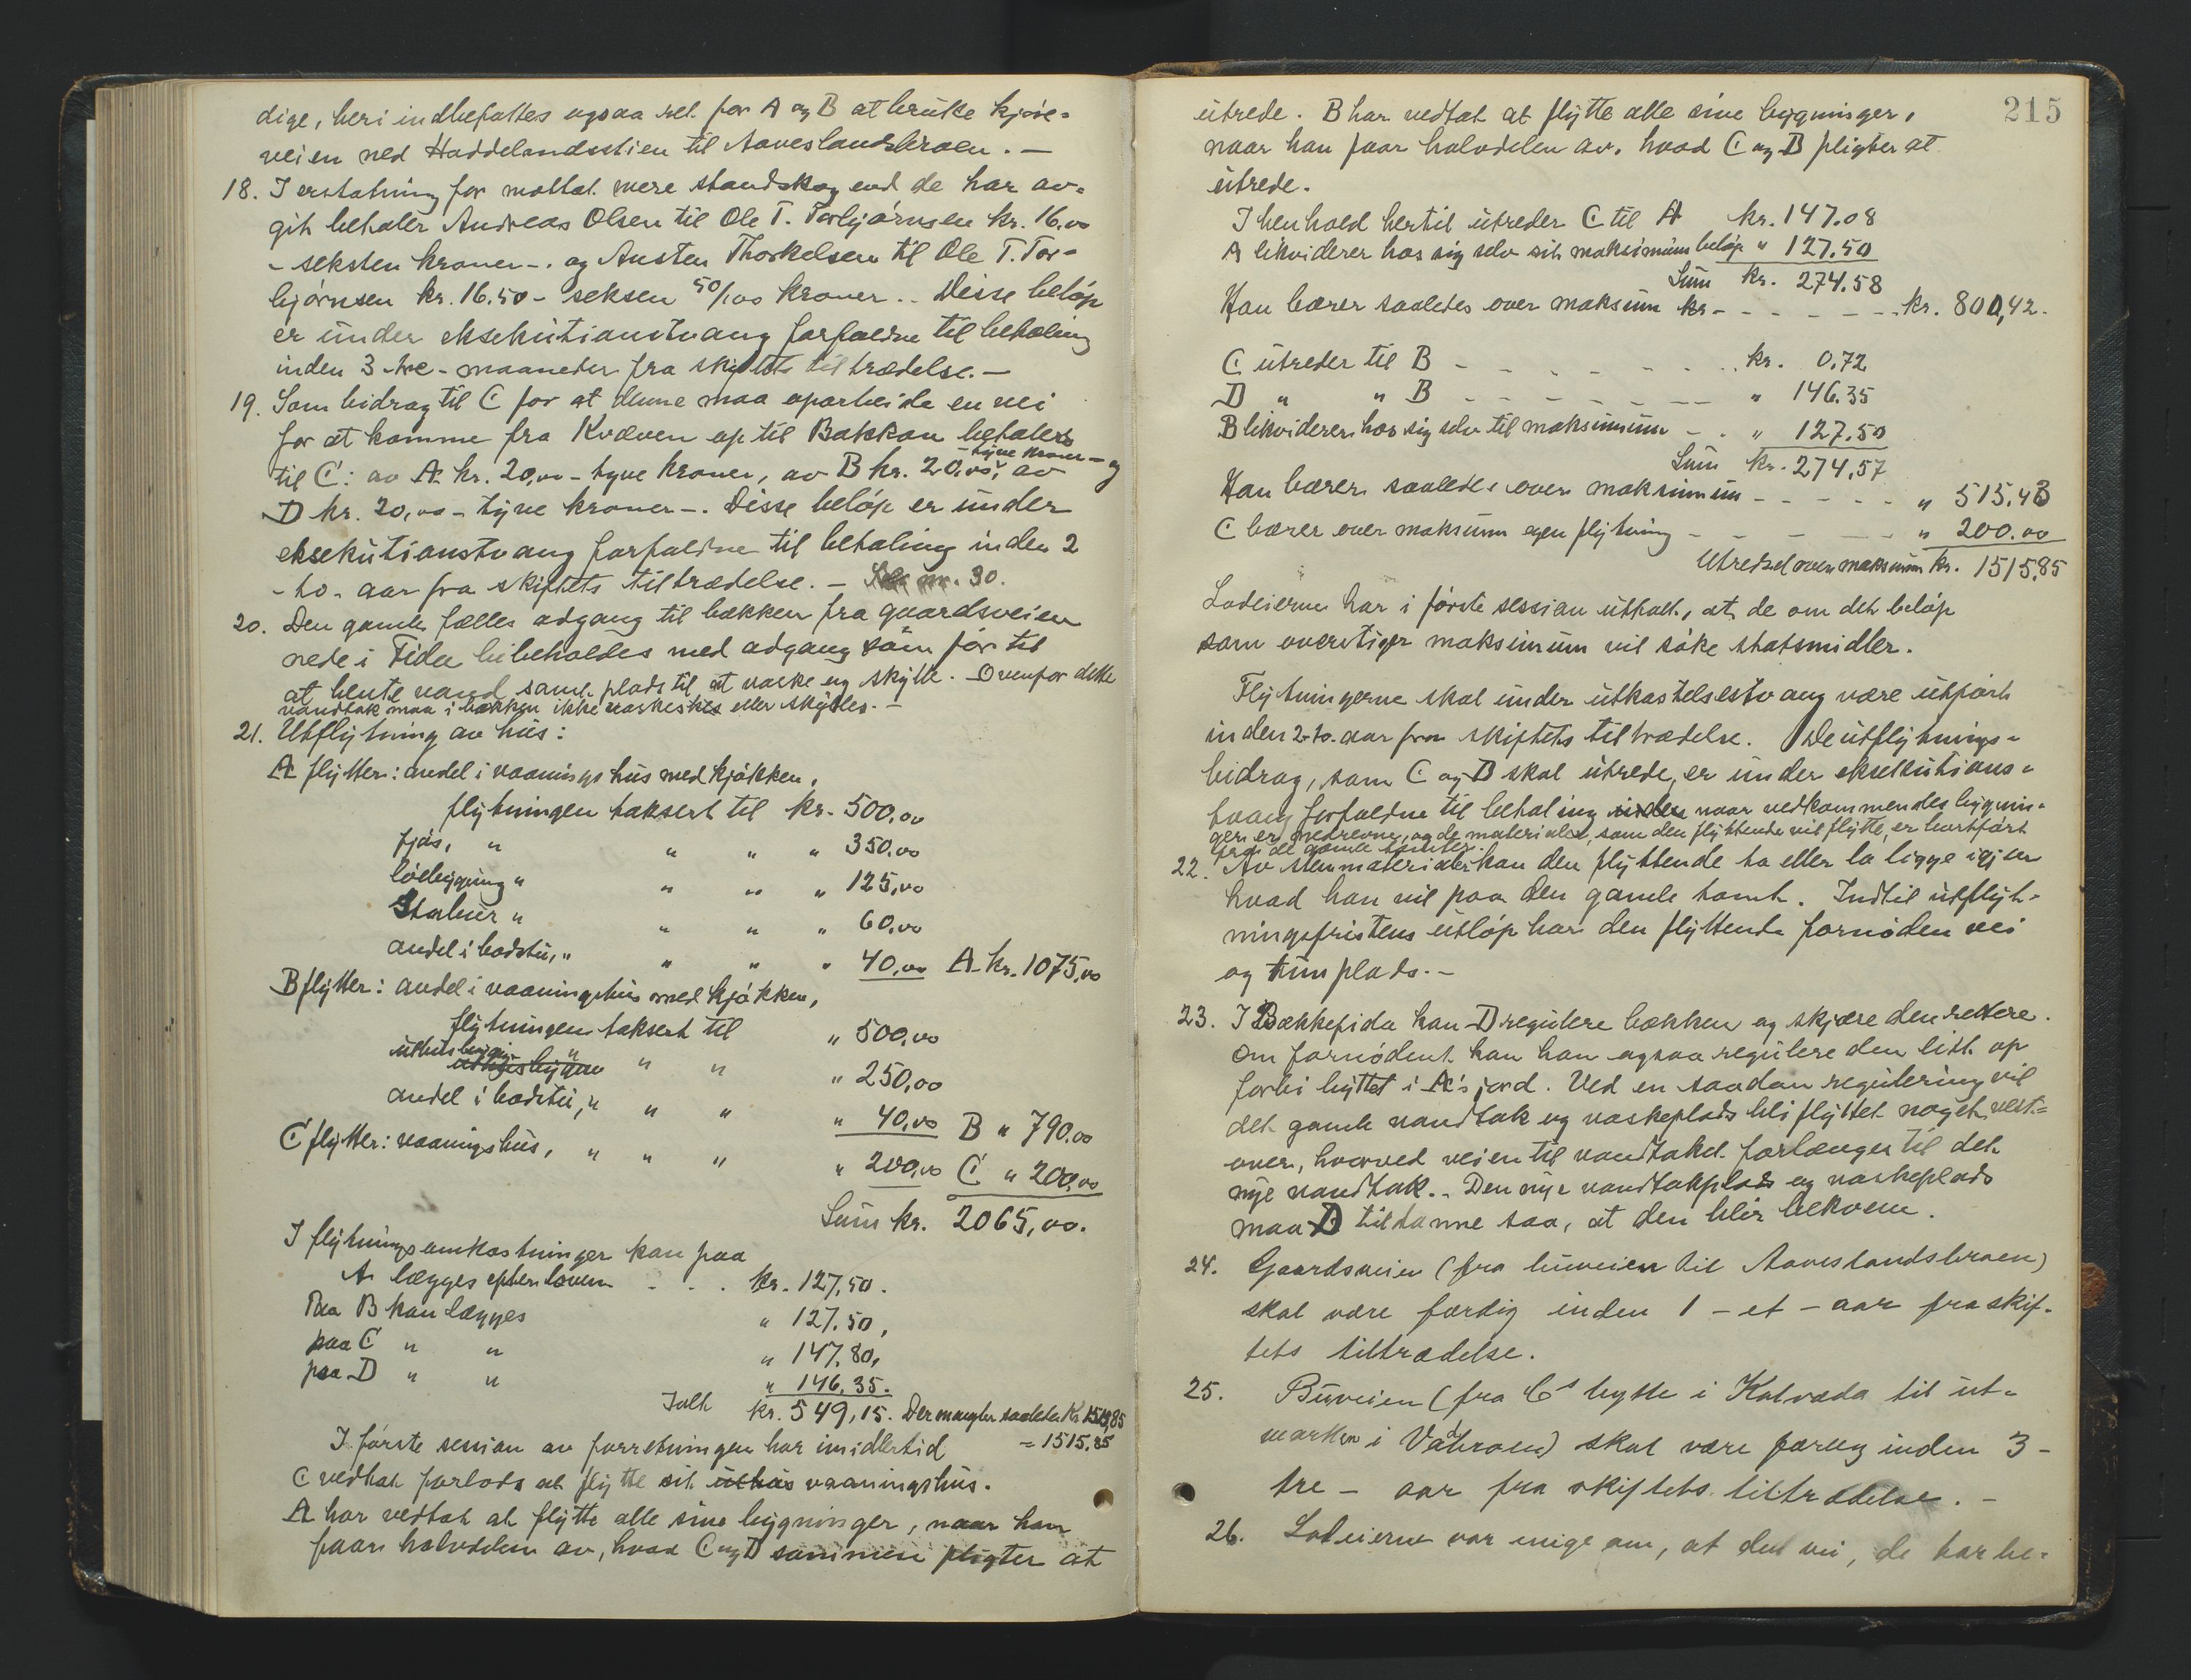 dige, heri indbefattes ogsaa ret for A og B at bruke kjøre-
veien ned Haddelandsstien til Aaveslandsbroen. —
18. I erstatning for mottat mere standskog end de har av-
git betaler Andreas Olsen til Ole T. Torbjørnsen kr. 16,00
- seksten kroner -. og Austen Thorkelsen til Ole T. Tor-
bjørnsen kr. 16.50 - seksen 50/100 kroner .. Disse beløp
er under eksekutionstvang forfaldne til betaling
inden 3 - tre - maaneder fra skiftets tiltrædelse. —
19. Som bidrag til C for at denne maa oparbeide en vei
for at komme fra Kvæven op til Bakkan betales
til C: av A kr. 20,00 - tyve kroner, av B kr. 20.00, - tyve kroner - og av
D kr. 20,00 - tyve kroner -. Disse beløp er under
eksekutionstvang forfaldne til betaling inden 2
- to - aar fra skiftets tiltrædelse. — Se nr. 30.
20. Den gamle fælles adgang til bækken fra gaardsveien
nede i Fida bibeholdes med adgang som før til
at hente vand samt plads til at vaske og skylle. Ovenfor dette
vandtak maa i bækken ikke vaskes eller skylles. —
21. Utflytning av hus:
A flytter: andel i vaaningshus med kjøkken,
flytningen taksert til kr. 500,00
fjøs, " " " " 350,00
løebygning " " " " 125,00
Stabur " " " " 60,00
andel i badstu, " " " " 40,00 A kr. 1075,00
B flytter: andel i vaaningshus med kjøkken,
flytningen taksert til " 500,00
uthusbygn. " " " " 250,00
andel i badstu, " " " " 40,00 B " 790.00
C flytter: vaaningshus, " " " " 200,00 C " 200,00
Sum kr. 2065,00.
I flytningsomkostninger kan paa
A lægges efter loven - . . kr. 127,50.
Paa B kan lægges " 127.50,
paa C " " " 147,80,
paa D " " " 146,35.
Ialt kr. 549,15. Der mangler saaledes kr. 1515,85
= 1515,85
I første session av forretningen har imidlertid
C vedtat forlods at flytte sit uthus vaaningshus.
A har vedtat at flytte alle sine bygninger, naar han
faar halvdelen av, hvad C og D sammen pligter at
215
utrede. B har vedtat at flytte alle sine bygninger,
naar han faar halvdelen av, hvad C og D pligter at
utrede.
I henhold hertil utreder C til A kr. 147.08
A likviderer hos sig selv sit maksimumbeløp " 127.50
Sum kr. 274.58
Han bærer saaledes over maksum kr - - - - - - . kr. 800,42.
C utreder til B - - - - - - . . kr. 0.72
D " " B - - - - - - - - " 146.35
B likviderer hos sig selv til maksimum - . " 127.50
Sum kr. 274,57
Han bærer saaledes over maksimum - - - - - " 515,43
C bærer over maksum egen flytning - - - - - " 200.00
Utredsel over maksum kr. 1515,85
Lodeierne har i første session uttalt, at de om det beløp
som overstiger maksimum vil søke statsmidler.
Flytningerne skal under utkastelsestvang være utført
inden 2-to-aar fra skiftets tiltrædelse. De utflytnings-
bidrag, som C og D skal utrede, er under eksekutions-
tvang forfaldne til betaling inden naar vedkommendes bygnin-
ger er nedrevne, og de materialer, som den flyttende vil flytte, er bortført
fra de gamle tomter.
22. Av stenmaterialer kan den flyttende ta eller la ligge igjen
hvad han vil paa den gamle tomt. Indtil utflyt-
ningsfristens utløp har den flyttende fornøden vei
og tunplads. -
23. I Bækkefida kan D regulere bækken og skjære den rettere.
Om fornødent kan han ogsaa regulere den litt op
forbi byttet i A's jord. Ved en saadan regulering vil
det gamle vandtak og vaskeplads bli flyttet noget vest-
over, hvorved veien til vandtaket forlænges til det
nye vandtak. - Den nye vandtakplads og vaskeplads
maa D tildanne saa, at den blir bekvem.
24. Gaardsveien (fra buveien til Aaveslandsbroen)
skal være færdig inden 1 - et - aar fra skif-
tets tiltrædelse.
25. Buveien (fra C's bytte i Kalvada til ut-
marken i Vabroen) skal være færdig inden 3 -
tre - aar fra skiftets tiltrædelse. -
26. Lodeierne var enige om, at den vei, de har be-